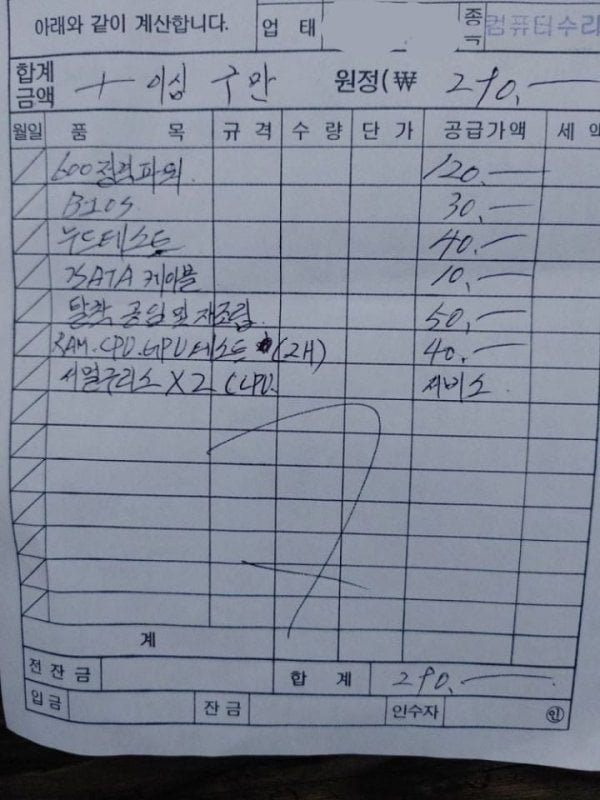 아래와 같이 계산합니다. 업 태 종 컴퓨터수리
합계 금액 이십 구만 원정(₩ 290.
월일 품 목 규 격 수 량 단 가 공급가액 세 액
600정격파워. 120.
BIOS. 30.
누드테스트 40.
SATA 케이블 10.
탈착 공임 및 재조립. 50.
RAM.CPU.GPU테스트 (2H) 40.
서멀구리스 X2 (CPU. 서비스.
계
전잔금 합 계 290.
입금 잔금 인수자 ㊞